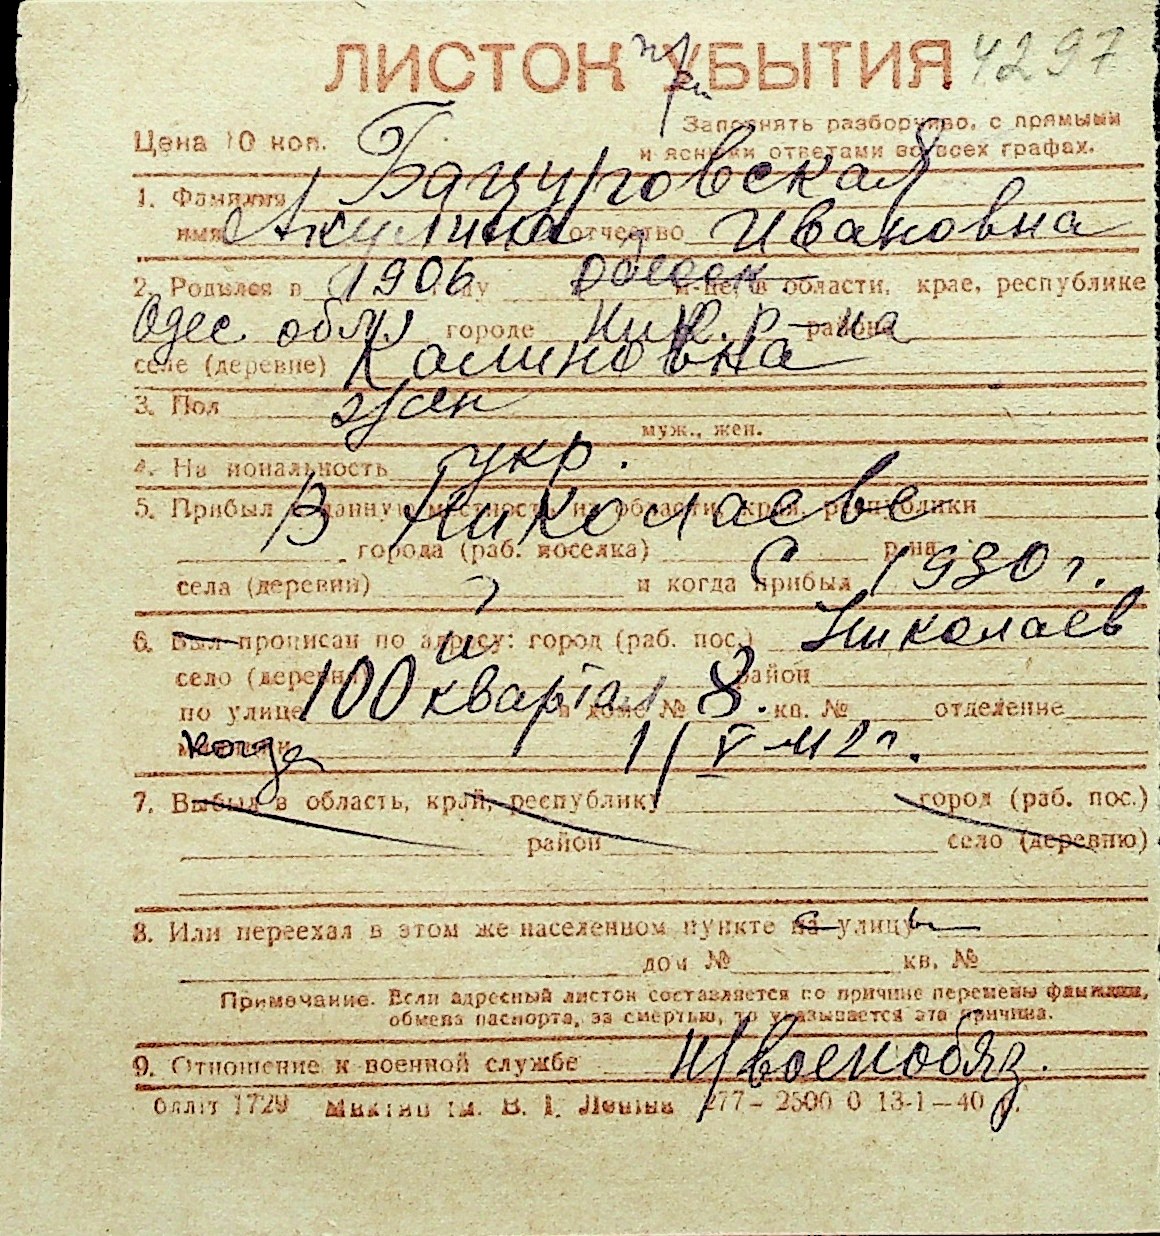 ЛИСТОК УБЫТИЯ 4297
при
Заполнять разборчиво, с прямыми
Цена 10 коп. и ясными ответами во всех графах.
1. Фамилия Бацуровская
имя Акулина отчество Ивановна
2. Родился в 1906 году Одесск р-не, в области, крае, республике
Одес. обл. городе Ник. р-на района
селе (деревне) Калиновка
3. Пол жен
муж., жен.
4. Национальность укр.
5. Прибыл в данную местность из области, края, республики В Николаеве
города (раб. поселка) р-на
села (деревни) и когда прибыл С 1930 г.
6. Был прописан по адресу: город (раб. пос.) Николаев
село (деревня) район
по улице 100 квартал в доме № 8. кв. № отделение
милиции когда 1/V-42 г.
7. Выбыл в область, край, республику город (раб. пос.)
район село (деревню)
8. Или переехал в этом же населенном пункте на с улицу ы
дом № кв. №
Примечание. Если адресный листок составляется по причине перемены фамилии,
обмена паспорта, за смертью, то указывается эта причина.
9. Отношение к военной службе н/военобяз.
1729 им. В. І. Леніна 277—2500 0 13-1—40 р.